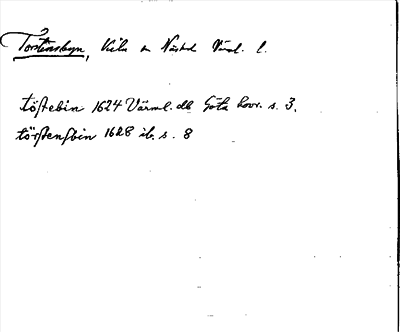 Torstensbyn, Kila sn Näs hd Värml. l.
töstebin 1624 Värml. db Göta hovr. s. 3.
törstensbin 1628 ib. s. 8